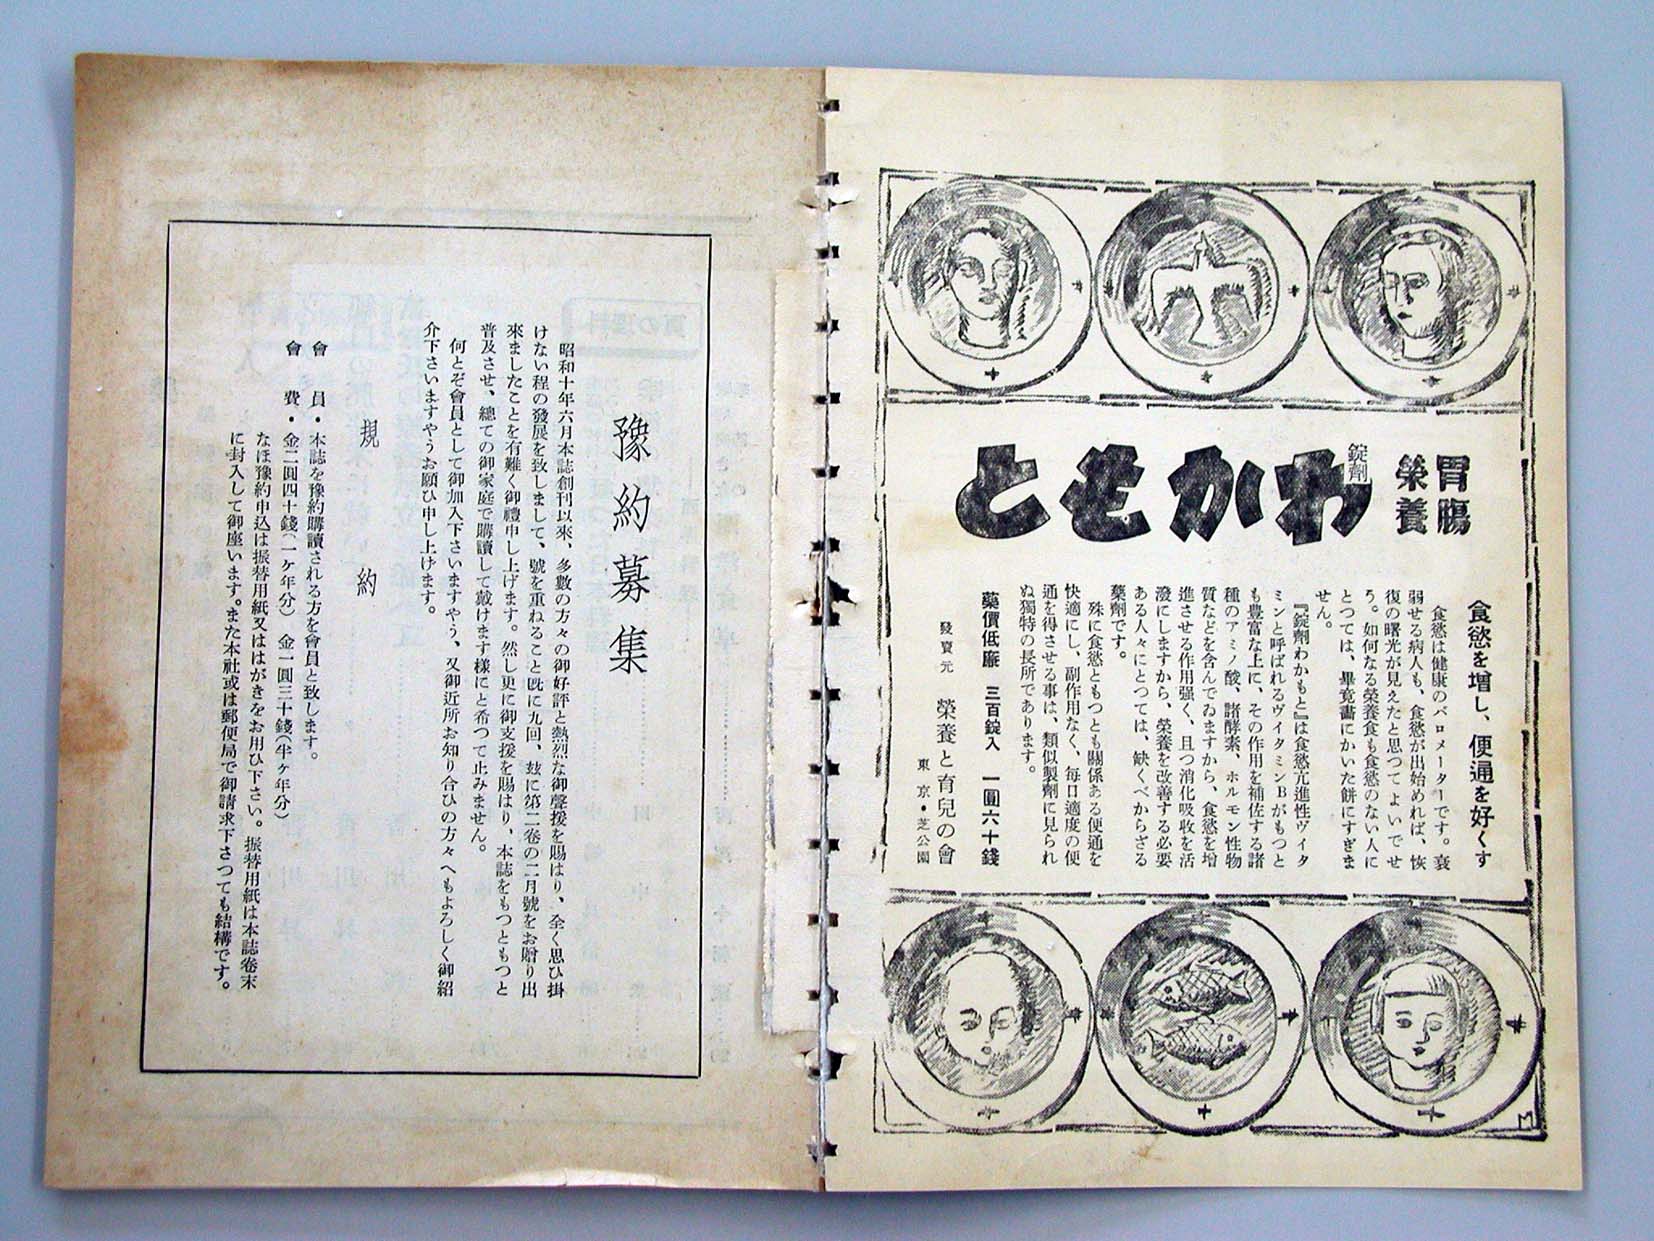 胃腸
榮養
錠劑
わかもと
食慾を增し、便通を好くす
食慾は健康のバロメーターです。衰
弱せる病人も、食慾が出始めれば、恢
復の曙光が見えたと思つてよいでせ
う。如何なる榮養食も食慾のない人に
とつては、畢竟畵にかいた餅にすぎま
せん。
『錠劑わかもと』は食慾亢進性ヴィタ
ミンと呼ばれるヴイタミンBがもつと
も豊富な上に、その作用を補佐する諸
種のアミノ酸、諸酵素、ホルモン性物
質などを含んでゐますから、食慾を增
進させる作用强く、且つ消化吸收を活
潑にしますから、榮養を改善する必要
ある人々にとつては、缺くべからざる
藥劑です。
殊に食慾ともつとも關係ある便通を
快適にし、副作用なく、每日適度の便
通を得させる事は、類似製劑に見られ
ぬ獨特の長所であります。
藥價低廉 三百錠入 一圓六十錢
發賣元 榮養と育兒の會
東京・芝公園
豫約募集
昭和十年六月本誌創刊以來、多數の方々の御好評と熱烈な御聲援を賜はり、全く思ひ掛
けない程の發展を致しまして、號を重ねること旣に九回、玆に第二卷の二月號をお贈り出
來ましたことを有難く御禮申し上げます。然し更に御支援を賜はり、本誌をもつともつと
普及させ、總ての御家庭で購讀して戴けます樣にと希つて止みません。
何とぞ會員として御加入下さいますやう、又御近所お知り合ひの方々へもよろしく御紹
介下さいますやうお願ひ申し上げます。
規約
會員・本誌を豫約購讀される方を會員と致します。
會費・金二圓四十錢(一ケ年分) 金一圓三十錢(半ケ年分)
なほ豫約申込は振替用紙又ははがきをお用ひ下さい。振替用紙は本誌卷末
に封入して御座います。また本社或は郵便局で御請求下さつても結構です。